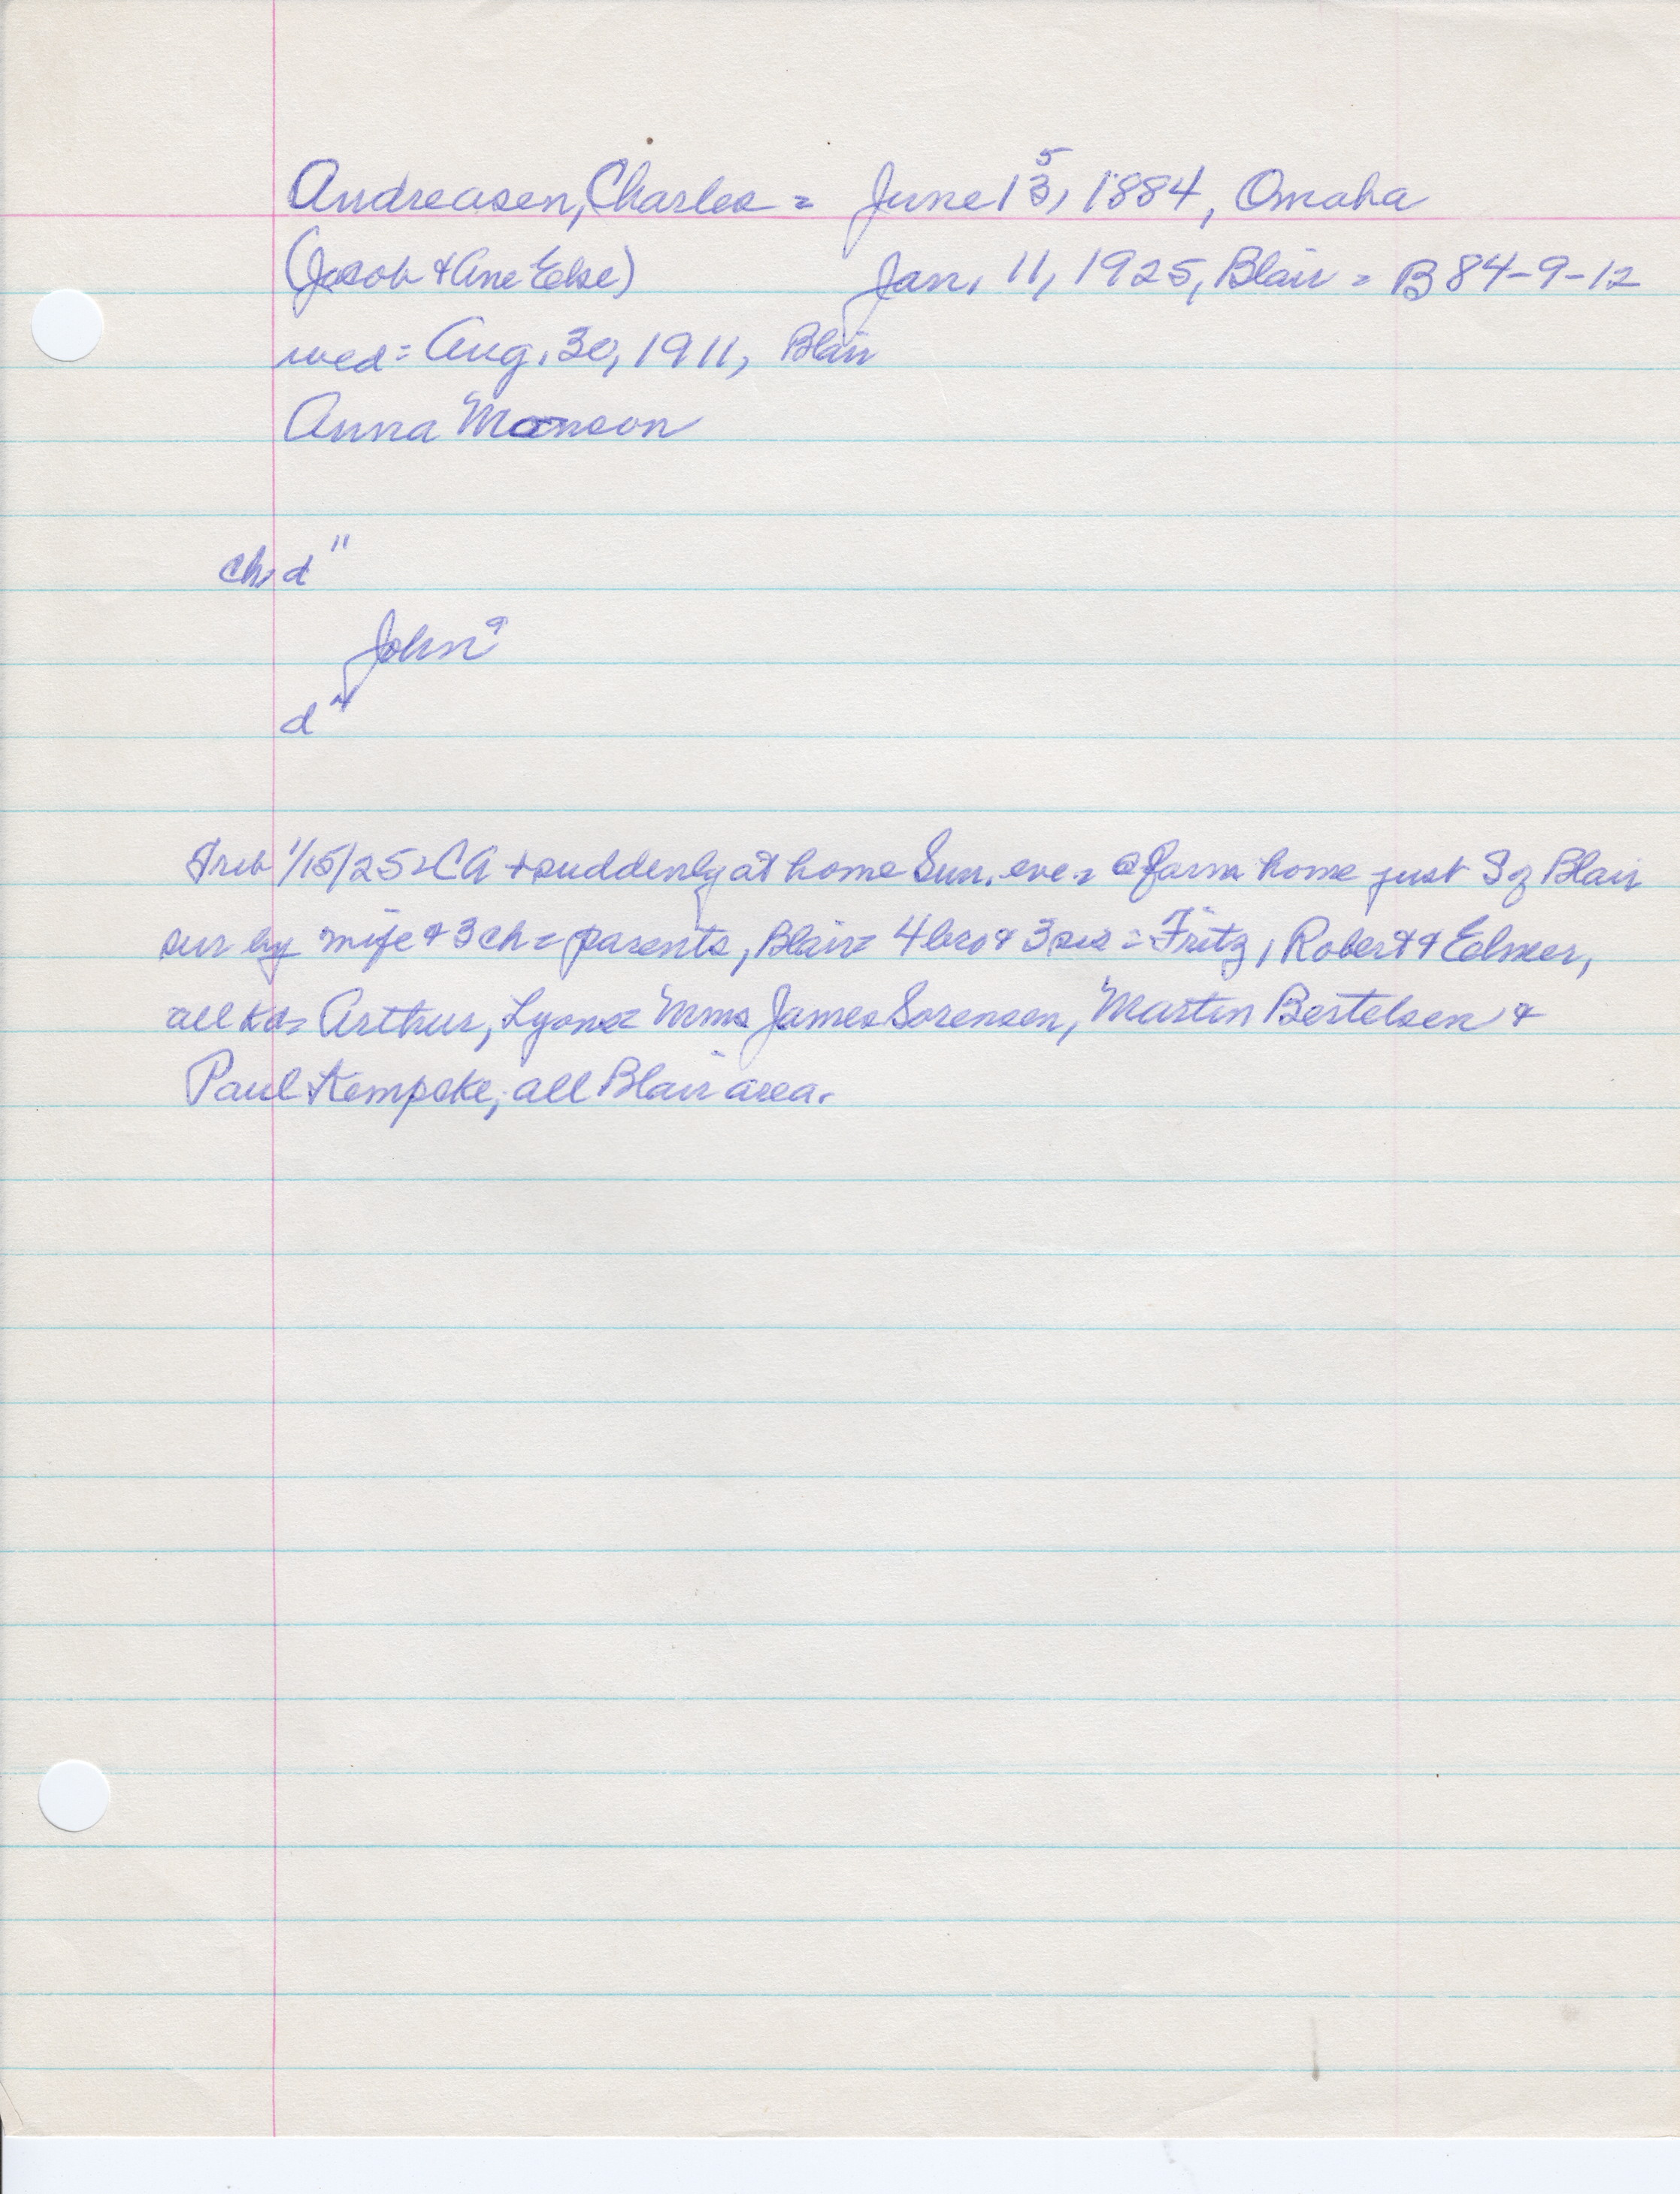 Andreasen, Charles = June 13, 1884, Omaha
5
(Jacob & Ane Else) Jan. 11, 1925, Blair = B 84-9-12
wed = Aug. 30, 1911, Blair
Anna Monson
ch, d"
John 9
d
Trib 1/15/25 = CA + suddenly at home Sun. eve = @ farm home just S of Blair
sur by wife & 3 ch = parents, Blair = 4 bro & 3 sis = Fritz, Robert & Edmer,
all Arthur, Lyons = Mms James Sorensen, Martin Bertelsen &
Paul Kempcke, all Blair area.